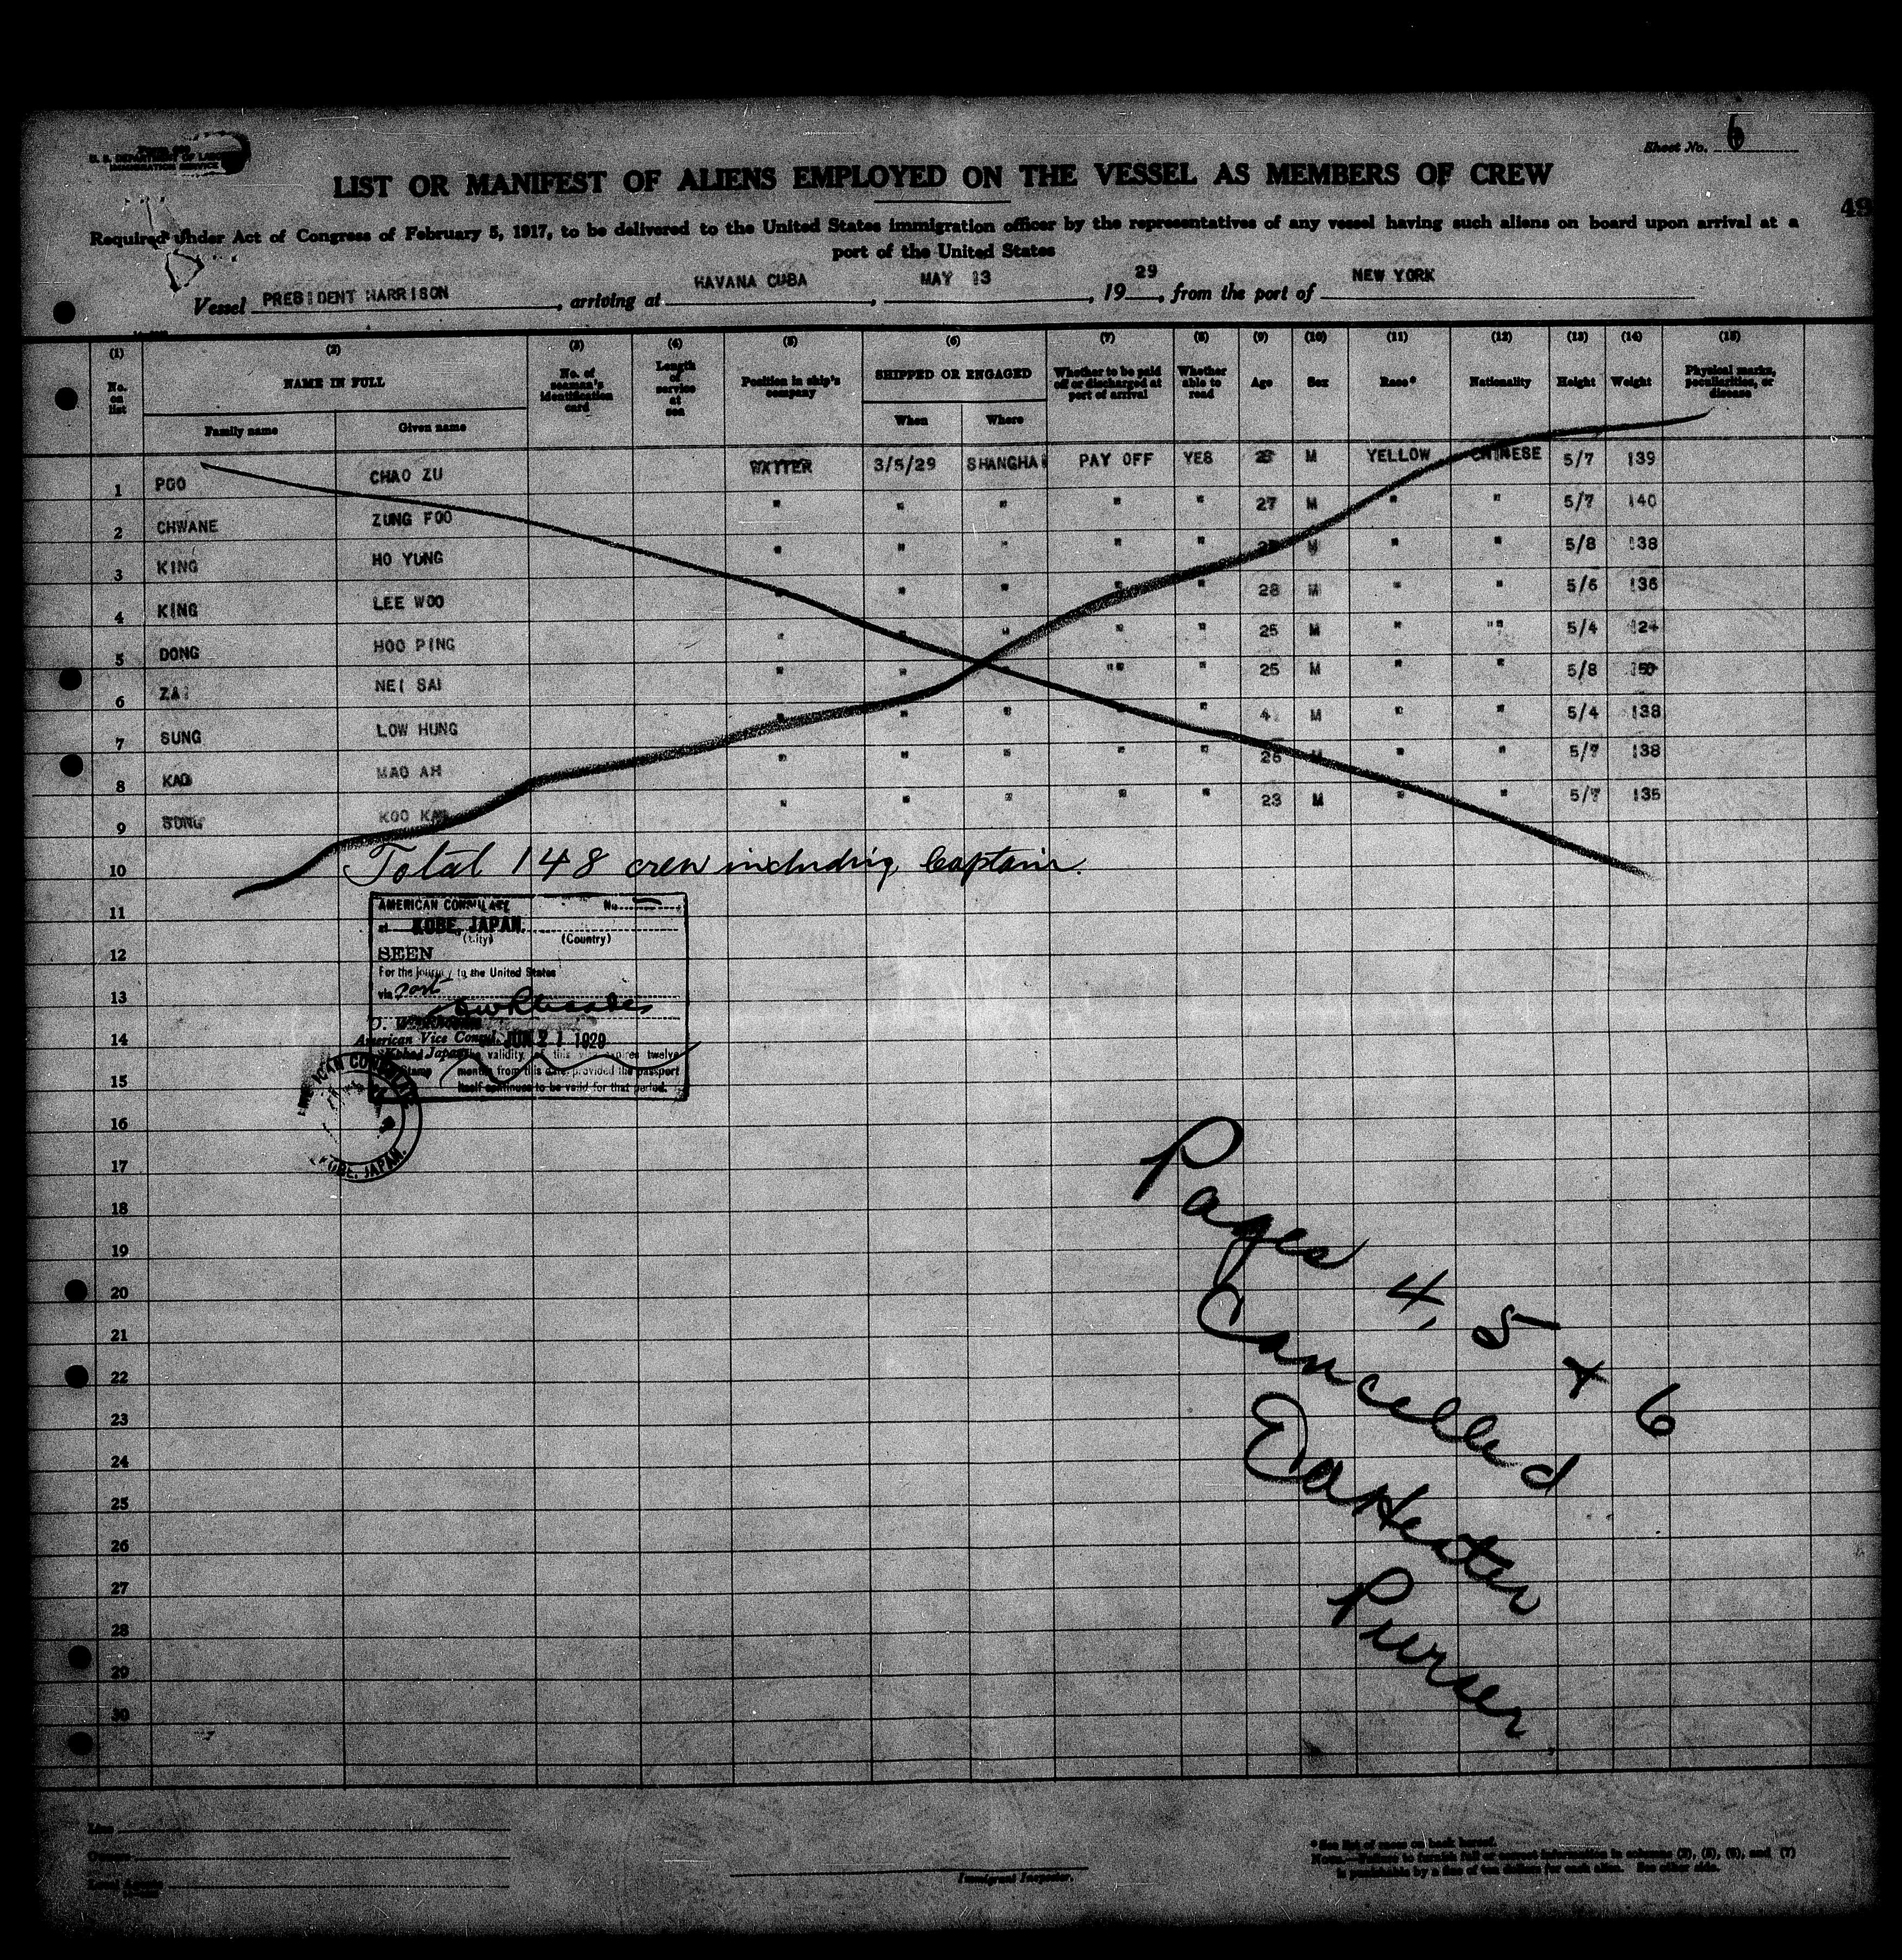 Sheet No. 6
U. S. DEPARTMENT OF LABOR
IMMIGRATION SERVICE
LIST OR MANIFEST OF ALIENS EMPLOYED ON THE VESSEL AS MEMBERS OF CREW
49
Required under Act of Congress of February 5, 1917, to be delivered to the United States immigration officer by the representatives of any vessel having such aliens on board upon arrival at a
port of the United States
Vessel PRESIDENT HARRISON, arriving at HAVANA CUBA, MAY 13, 1929, from the port of NEW YORK
(1) (2) (3) (4) (5) (6) (7) (8) (9) (10) (11) (12) (13) (14) (15)
No. on list NAME IN FULL No. of seaman's identification card Length of service at sea Position in ship's company SHIPPED OR ENGAGED Whether to be paid off or discharged at port of arrival Whether able to read Age Sex Race* Nationality Height Weight Physical marks, peculiarities, or disease
Family name Given name When Where
1 POO CHAO ZU WAITER 3/5/29 SHANGHAI PAY OFF YES M YELLOW CHINESE 5/7 139
2 CHWANE ZUNG FOO " " " " " 27 M " " 5/7 140
3 KING HO YUNG " " " " " M " " 5/8 138
4 KING LEE WOO " " " " " 28 M " " 5/6 136
5 DONG HOO PING " " " " " 25 M " " 5/4 124
6 ZAI NEI SAI " " " " " 25 M " " 5/8 150
7 SUNG LOW HUNG " " " " " M " " 5/4 138
8 KAO MAO AH " " " " " 26 M " " 5/7 138
9 SONG KOO " " " " " 23 M " " 5/7 135
10 Total 148 crew including Captain.
11
12
13
14
15
16
17
18
19
20
21
22
23
24
25
26
27
28
29
30
AMERICAN CONSULATE No.
at KOBE, JAPAN.
(City) (Country)
SEEN
For the journey to the United States
via Port
American Vice Consul JUN 21 1929
Kobe, Japan The validity of this visa expires twelve
Stamp months from this date, provided the passport
itself continues to be valid for that period.
AMERICAN CONSULATE
KOBE, JAPAN.
Pages 4, 5 + 6
Cancelled
Purser
Line
Owners
Local Agents
Immigrant Inspector.
*See list of races on back hereof.
NOTE.—Failure to furnish full or correct information in columns (2), (5), (6), and (7)
is punishable by a fine of ten dollars for each alien. See other side.